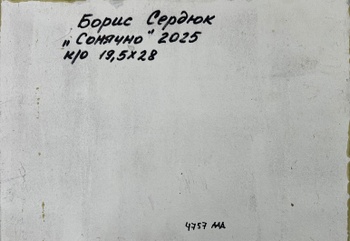 Борис Сердюк
„Сонячно" 2025
к/о 19,5х28
4757 МА